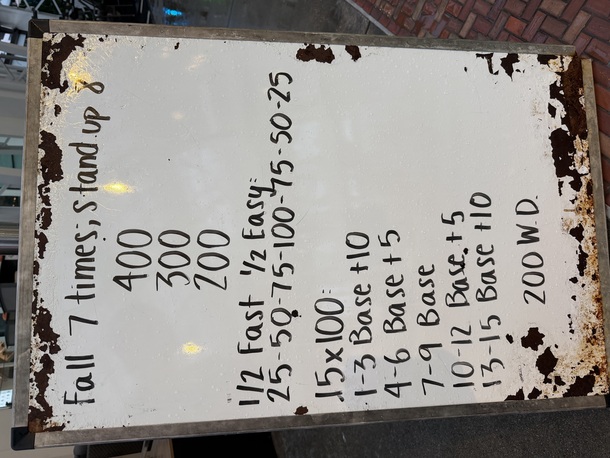 Fall 7 times; stand up 8
400
300
200
1/2 Fast 1/2 Easy:
25-50-75-100-75-50-25
15x100:
1-3 Base +10
4-6 Base +5
7-9 Base
10-12 Base +5
13-15 Base +10
200 W.D.